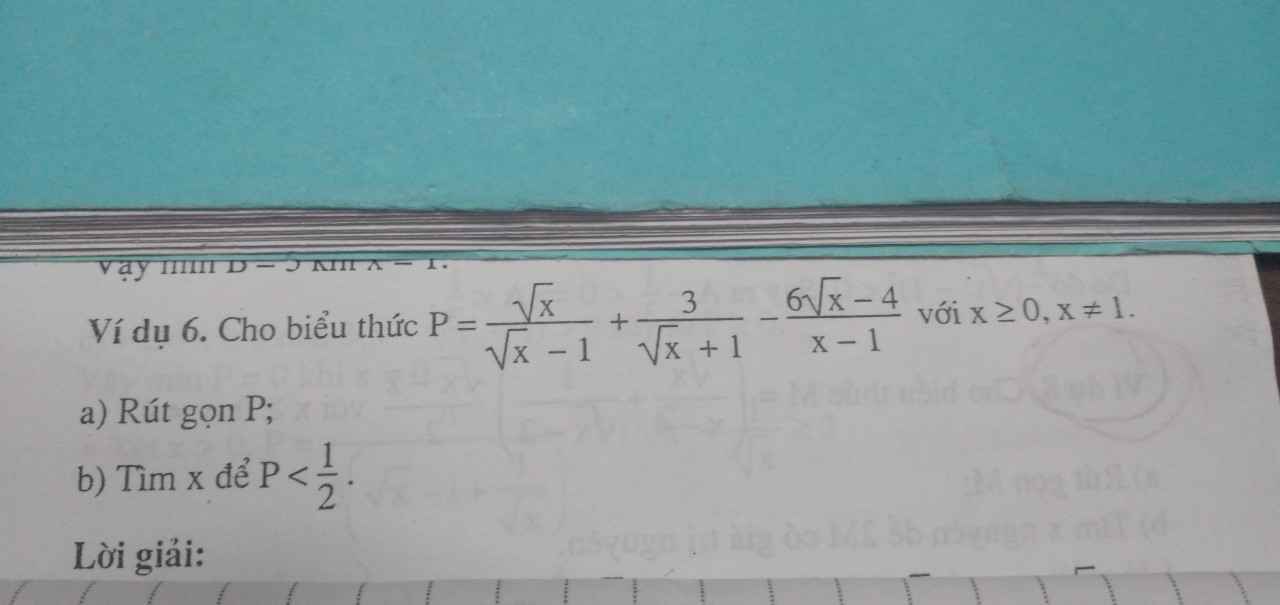 Vậy min B = 3 khi x = 1.
Ví dụ 6. Cho biểu thức P = \frac{\sqrt{x}}{\sqrt{x} - 1} + \frac{3}{\sqrt{x} + 1} - \frac{6\sqrt{x} - 4}{x - 1} với x ≥ 0, x ≠ 1.
a) Rút gọn P;
b) Tìm x để P < \frac{1}{2}.
Lời giải: